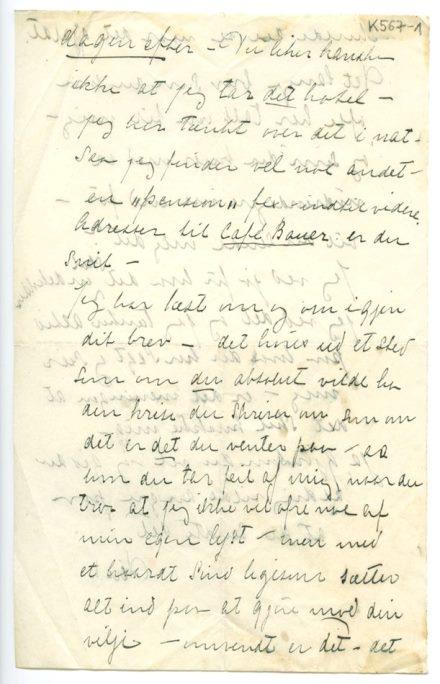 K567-1
dagen efter – Du liker kanske
ikke at jeg tar det hotel –
jeg har tænkt over det i nat –
Saa jeg finder vel noe andet –
en „pension„ for indtil videre.
Adresser til Café Bauer er du
snil –
Jeg har læst om og om igjen
dit brev – det høres ud et sted
som om du absolut vilde ha
den krise du skriver om som om
det er det du venter paa – aa
hvor du tar feil af mig naar du
tror at jeg ikke vil ofre noe af
min egen lyst – men med
et haardt sind ligesom sætter
alt ind paa at gjøre mod din
vilje – omvendt er det – det